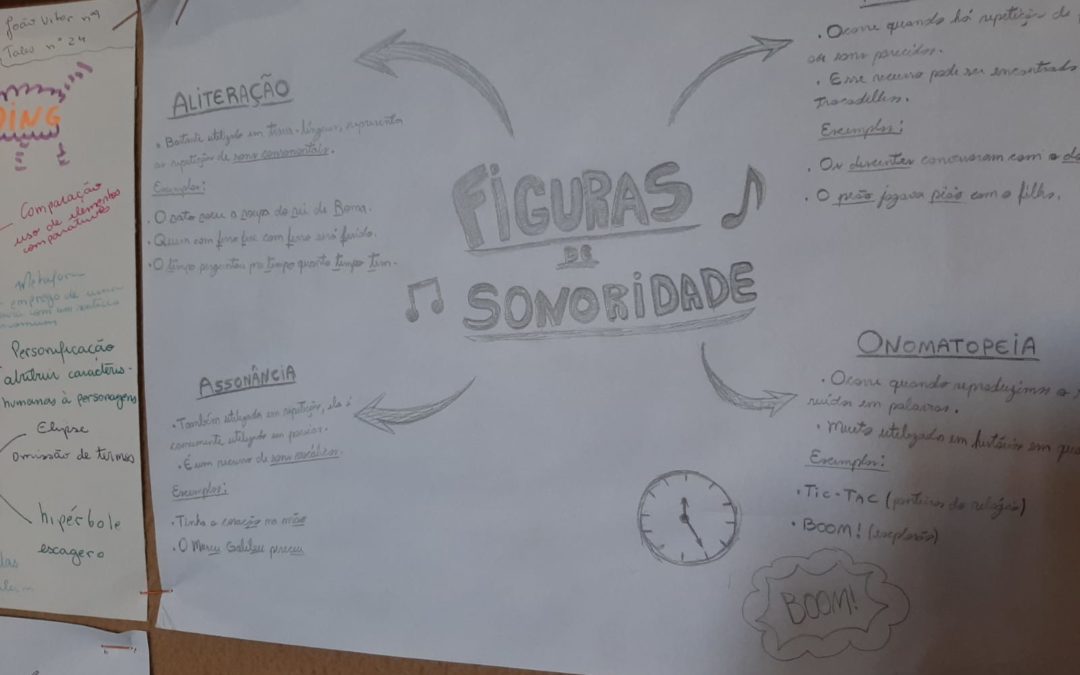 João Vitor nº9
Tales nº 24
DING
Comparação
uso de elementos
comparativos
Metáfora
emprego de uma
com um sentido
Personificação
atribuir caracterís-
humanas à personagens
Elipse
omissão de termos
hipérbole
escagero
FIGURAS
DE
SONORIDADE
ALITERAÇÃO
• Bastante utilizado em trava-línguas, representa
as repetições de sons consonantais.
Exemplos:
• O rato roeu a roupa do rei de Roma.
• Quem com ferro fere com ferro será ferido.
• O tempo perguntou pro tempo quanto tempo tem.
ASSONÂNCIA
• Também utilizada em repetição, ela é
comumente utilizado em poesias.
• É um recurso de sons vocálicos.
Exemplos:
• Tinha o coração na mão
• O Marcu Galileu pereceu
• Ocorre quando há repetição de
ou sons parecidos.
• Esse recurso pode ser encontrado
trocadilhos.
Exemplos:
• Os discentes conversaram com o
O peão jogava pião com o filho.
ONOMATOPEIA
• Ocorre quando reproduzimos o
ruídos em palavras.
• Muito utilizado em histórias em
Exemplos:
• TIC-TAC (ponteiros do relógio)
• BOOM! (explosão)
BOOM!